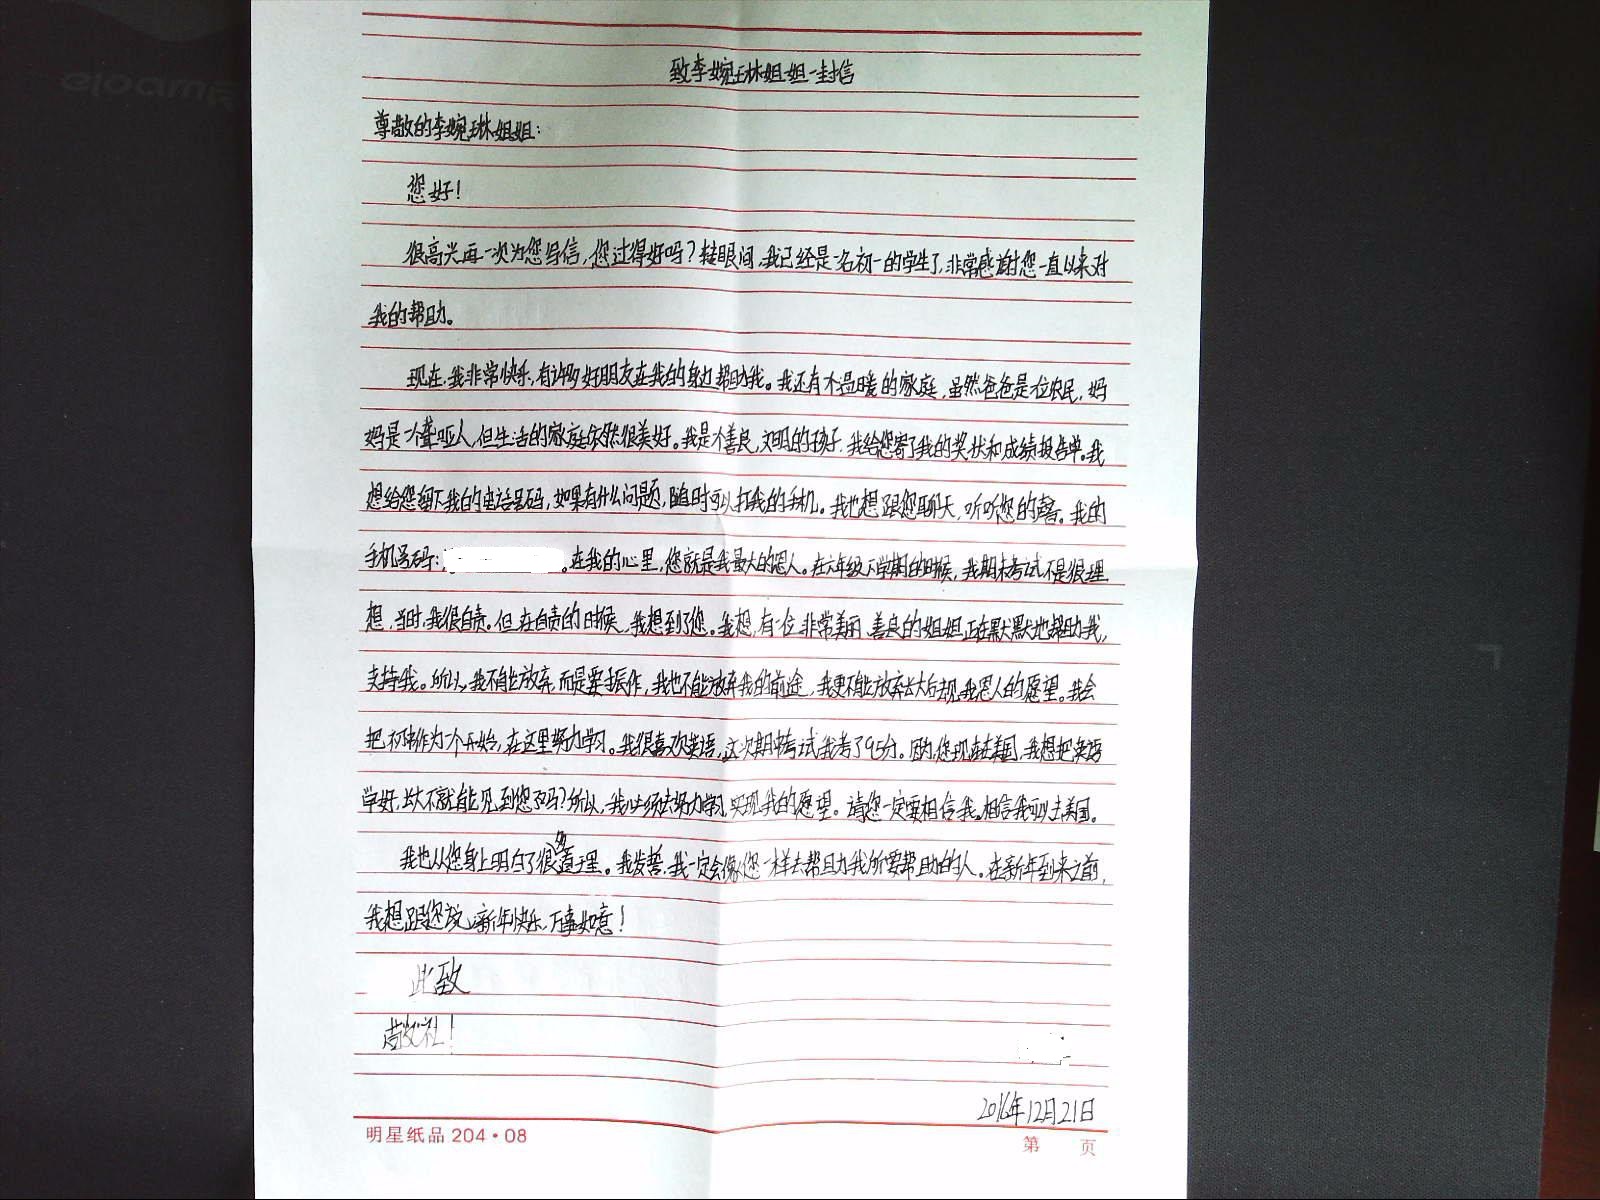 致李婉琳姐姐一封信
尊敬的李婉琳姐姐：
您好！
很高兴再一次为您写信，您过得好吗？转眼间，我已经是一名初一的学生了，非常感谢您一直以来对
我的帮助。
现在，我非常快乐，有许多好朋友在我的身边帮助我。我还有个温暖的家庭，虽然爸爸是位农民，妈
妈是一个聋哑人，但生活的家庭依然很美好。我是个善良，文明的孩子，我给您寄了我的奖状和成绩报告单。我
想给您留下我的电话号码，如果有什么问题，随时可以打我的手机。我也想跟您聊天，听听您的声音。我的
手机号码：。在我的心里，您就是我最大的恩人。在六年级下学期的时候，我期末考试不是很理
想，当时，我很自责。但在自责的时候，我想到了您。我想，有一位非常美丽、善良的姐姐正在默默地帮助我，
支持我。所以，我不能放弃，而是要振作，我也不能放弃我的前途，我更不能放弃长大后去见我恩人的愿望。我会
把初中作为一个开始，在这里努力学习。我很喜欢英语，这次期中考试我考了95分。因为，您现在在美国，我想把英语
学好，长大不就能见到您了吗？所以，我必须去努力学习，实现我的愿望。请您一定要相信我。相信我可以去美国。
我也从您身上明白了很多道理。我发誓，我一定会像您一样去帮助我所要帮助的人。在新年到来之前，
我想跟您说：新年快乐，万事如意！
此致
敬礼！
2016年12月21日
明星纸品 204·08
第 页